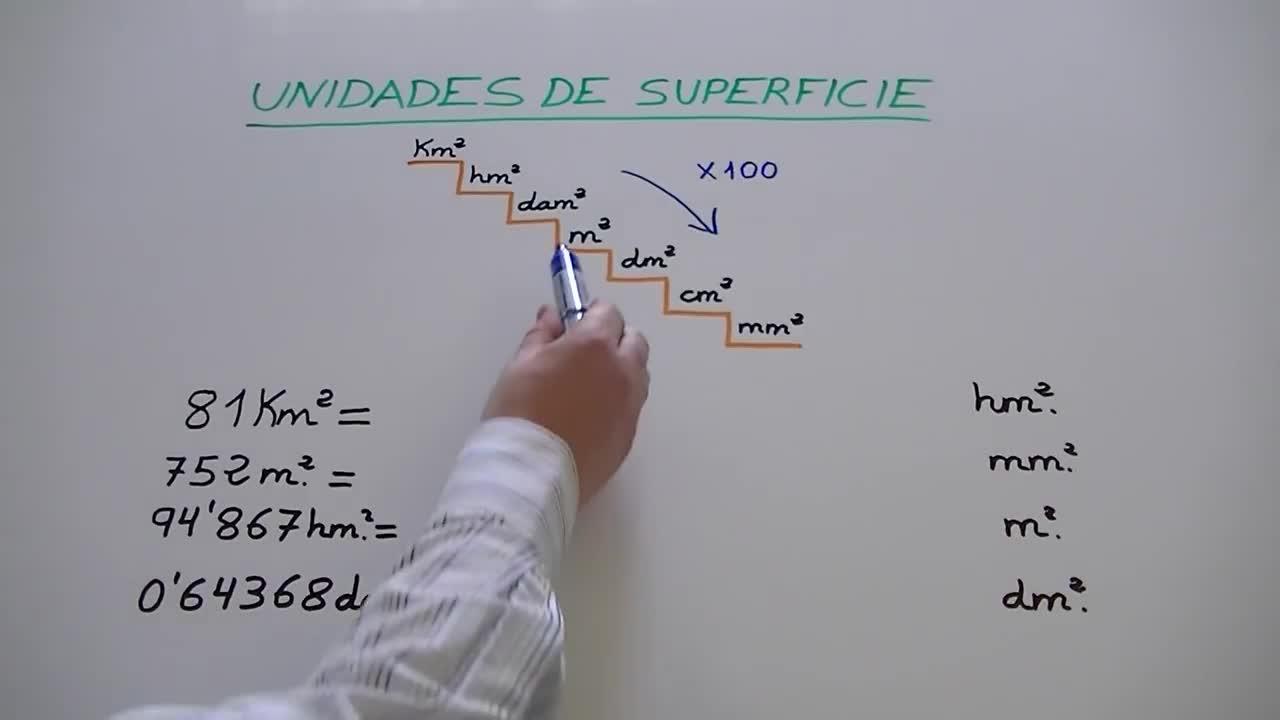 UNIDADES DE SUPERFICIE
Km²
hm²
x100
dam²
m²
dm²
cm²
mm²
81Km²= hm².
752m².= mm².
94'867hm².= m².
0'64368 dm².